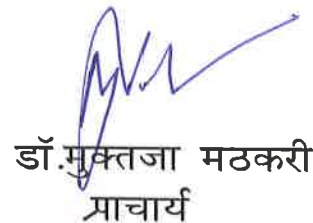 डॉ.मुक्तजा मठकरी
प्राचार्य